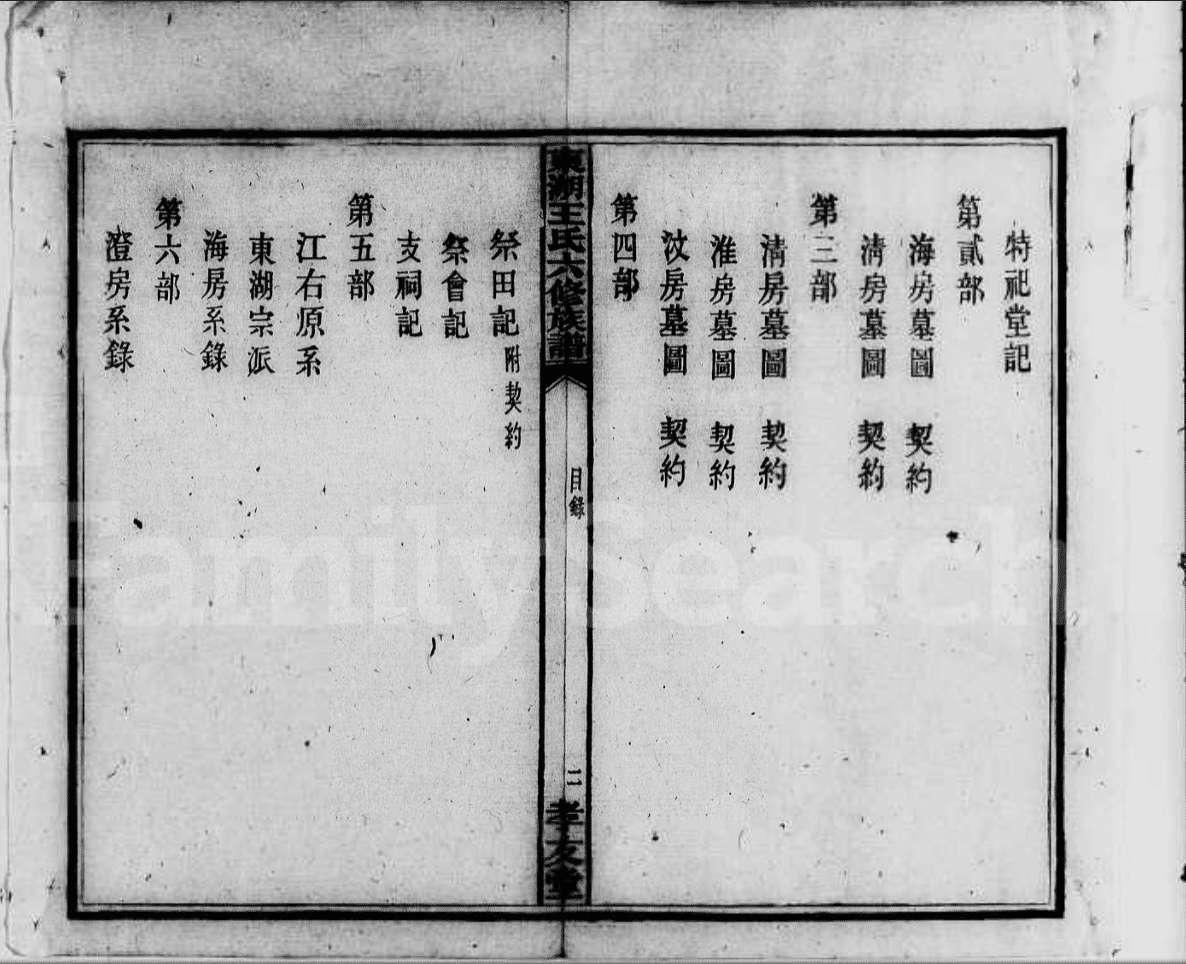 特祀堂記
第貳部
海房墓圖 契約
淸房墓圖 契約
第三部
淸房墓圖 契約
淮房墓圖 契約
汶房墓圖 契約
第四部
東湖王氏六修族譜
目錄
二
孝友堂
祭田記附契約
祭會記
支祠記
第五部
江右原系
東湖宗派
海房系錄
第六部
澄房系錄
FamilySearch